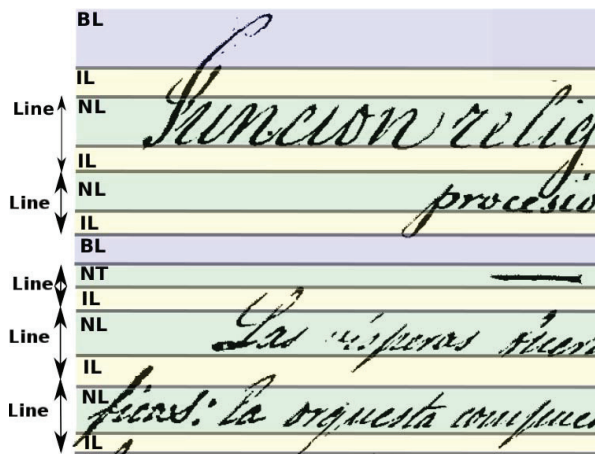 BL
IL
Line NL Funcion relig
IL
Line NL procesio
IL
BL
Line NT
IL
Line NL Las vísperas
IL
Line NL ficas: la orquesta compue
IL